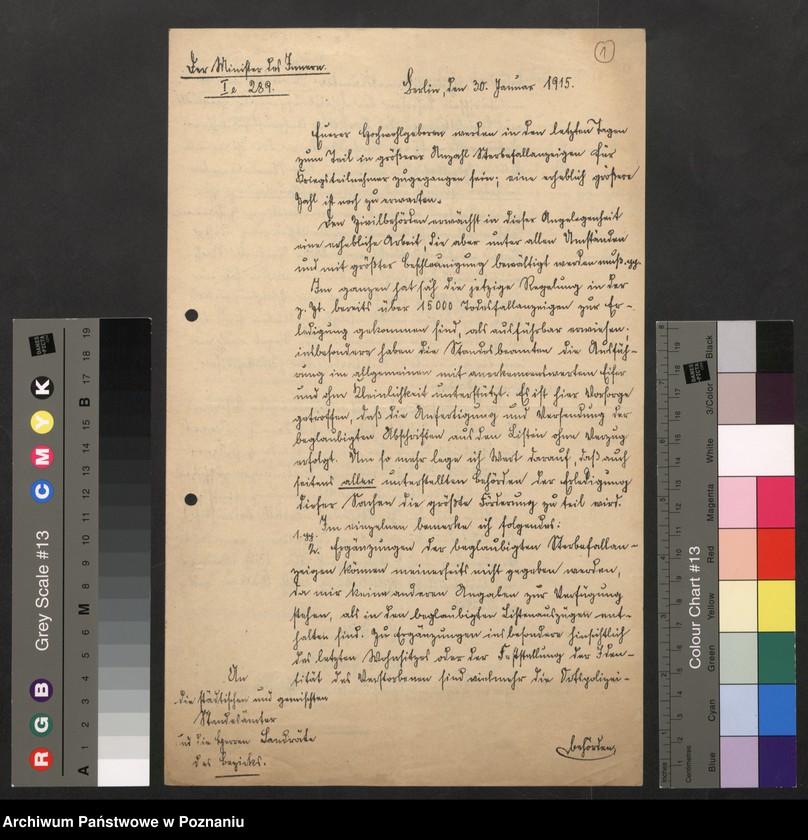 1
Der Minister des Innern.
I e 289.
Berlin, den 30. Januar 1915.
Euerer Hochwohlgeboren werden in den letzten Tagen
zum Teil in größerer Anzahl Sterbefallanzeigen für
Kriegsteilnehmer zugegangen sein; eine erheblich größere
Zahl ist noch zu erwarten.
Den Zivilbehörden erwächst in dieser Angelegenheit
eine erhebliche Arbeit, die aber unter allen Umständen
und mit größter Beschleunigung bewältigt werden muß. pp.
Im ganzen hat sich die jetzige Regelung, in der
z. Zt. bereits über 15000 Todesfallanzeigen zur Er-
ledigung gekommen sind, als ausführbar erwiesen.
insbesondere haben die Standesbeamten die Ausfüh-
rung im allgemeinen mit anerkennenswertem Eifer
und ohne Kleinlichkeit unterstützt. Es ist hier Vorsorge
getroffen, daß die Anfertigung und Versendung der
beglaubigten Abschriften aus den Listen ohne Verzug
erfolgt. Um so mehr lege ich Wert darauf, daß auch
seitens aller unterstellten Behörden der Erledigung
dieser Sachen die größte Förderung zu teil wird.
Im einzelnen bemerke ich folgendes:
1. pp.
2. Ergänzungen der beglaubigten Sterbefallan-
zeigen können meinerseits nicht gegeben werden,
da mir keine anderen Angaben zur Verfügung
stehen, als in den beglaubigten Listenauszügen ent-
halten sind. Zu Ergänzungen insbesondere hinsichtlich
des letzten Wohnsitzes oder der Feststellung der Iden-
tität des Verstorbenen sind vielmehr die Ortspolizei-
behörden
An
die städtischen und gemischten
Standesämter
und die Herren Landräte
des Bezirks.
Grey Scale #13
DANES PICTA
R G B C M Y K
A 1 2 3 4 5 6 M 8 9 10 11 12 13 14 15 B 17 18 19
Colour Chart #13
DANES PICTA
Blue Cyan Green Yellow Red Magenta White 3/Color Black
Inches
Centimetres
Archiwum Państwowe w Poznaniu